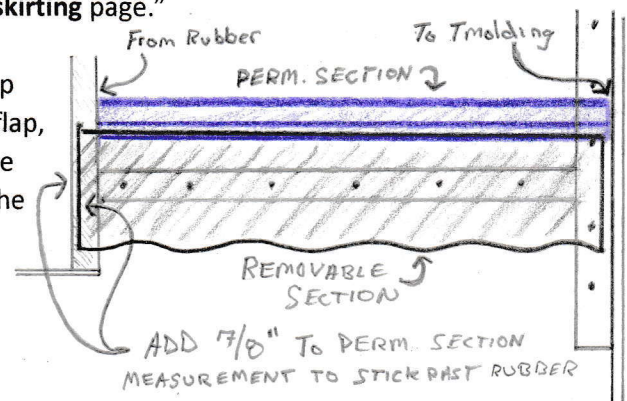 skirting page.”
From Rubber
To Tmolding
p
PERM. SECTION
flap,
e
he
REMOVABLE
SECTION
ADD 7/8" TO PERM. SECTION
MEASUREMENT TO STICK PAST RUBBER